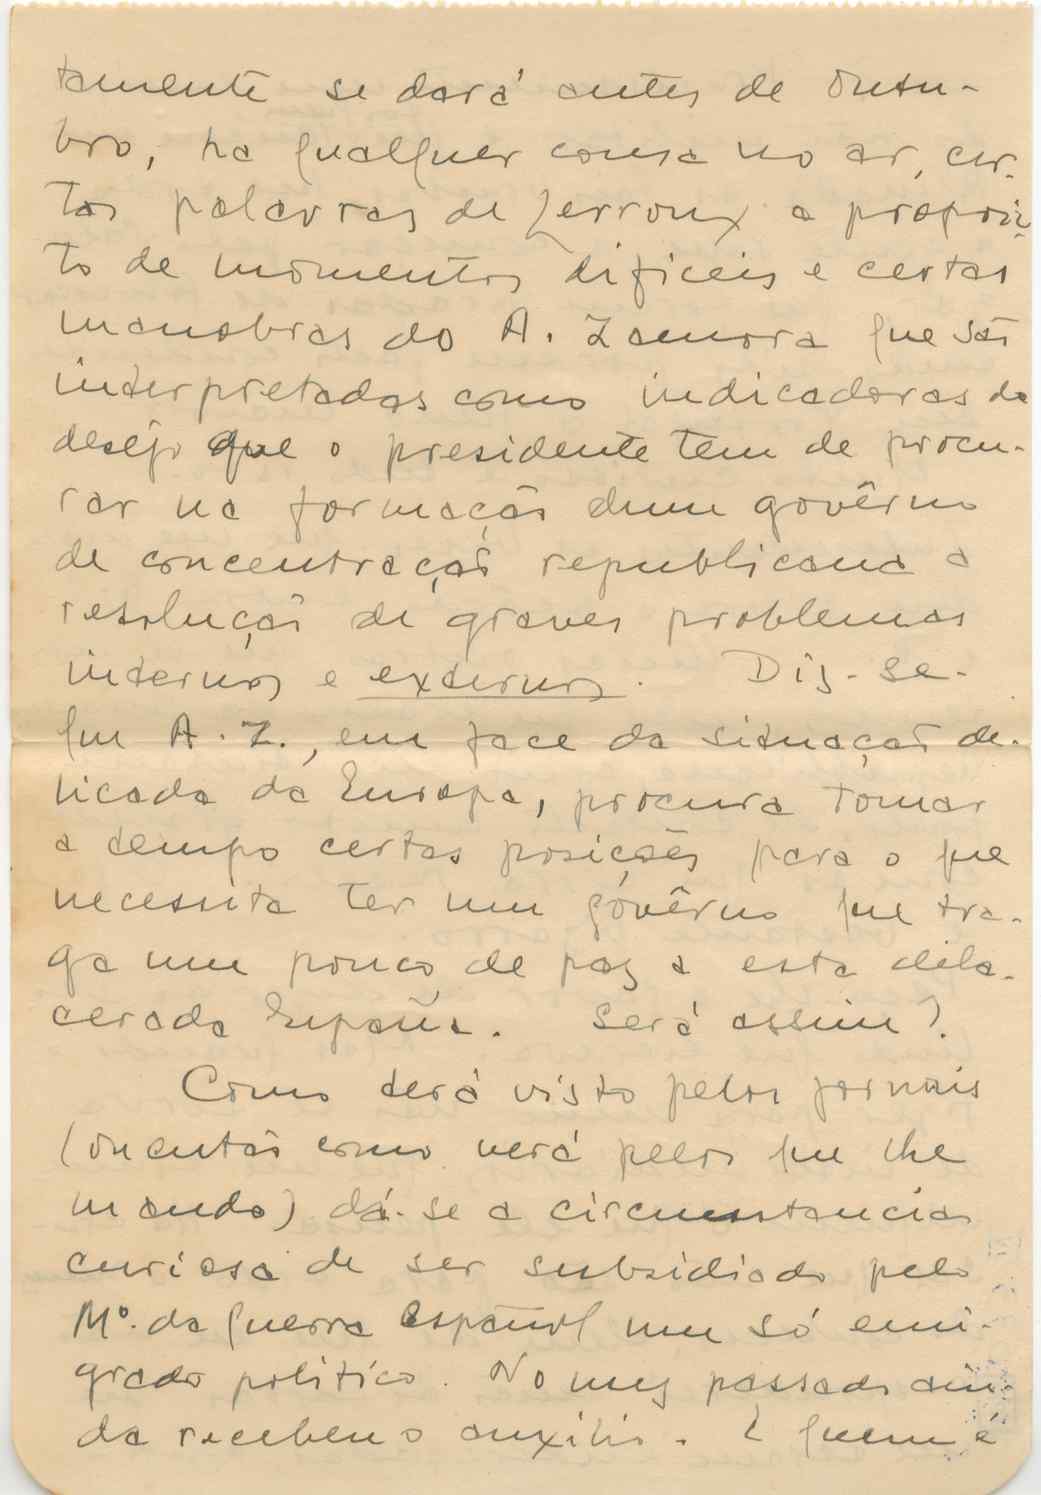 tamente se dará antes de Outu-
bro, ha qualquer cousa no ar, cer-
tas palavras de Lerroux a proposi-
to de momentos dificeis e certas
manobras do A. Zamora que são
interpretadas como indicadoras do
desejo que o presidente tem de procu-
rar na formação dum govêrno
de concentração republicana a
resolução de graves problemas
internos e externos. Diz-se-
que A. Z., em face da situação de-
licada da Europa, procura tomar
a tempo certas posições para o que
necessita ter um govêrno que tra-
ga um pouco de paz a esta dila-
cerada España. Será assim?
Como terá visto pelos jornais
(ou então como verá pelos que lhe
mando) dá-se a circumstancia
curiosa de ser subsidiado pelo
Mº. da Guerra español um só emi-
grado politico. No mez passado ain-
da recebeu o auxilio. E quem é